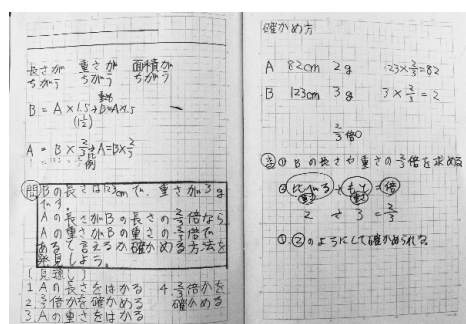 長さが 重さが 面積が
ちがう ちがう ちがう
B = A × 1.5 → B = A×1.5
(1½)
A = B × 2/3 → A=B×2/3
比例
問 Bの長さは123cmで、重さが3g
です。
Aの長さがBの長さの2/3倍なら
Aの重さがBの重さの2/3倍で
あると言えるか確かめる方法を
発見しよう。
(見通し)
1.Aの長さをはかる 4.2/3倍かを
2.2/3倍かを確かめる 確かめる
3.Aの重さをはかる
確かめ方
A 82cm 2g 123×2/3=82
B 123cm 3g 3×2/3=2
2/3倍
① Bの長さや重さの2/3倍を求める
② 比べる ÷ もと = 倍
2 ÷ 3 = 2/3
①、②のようにして確かめられる